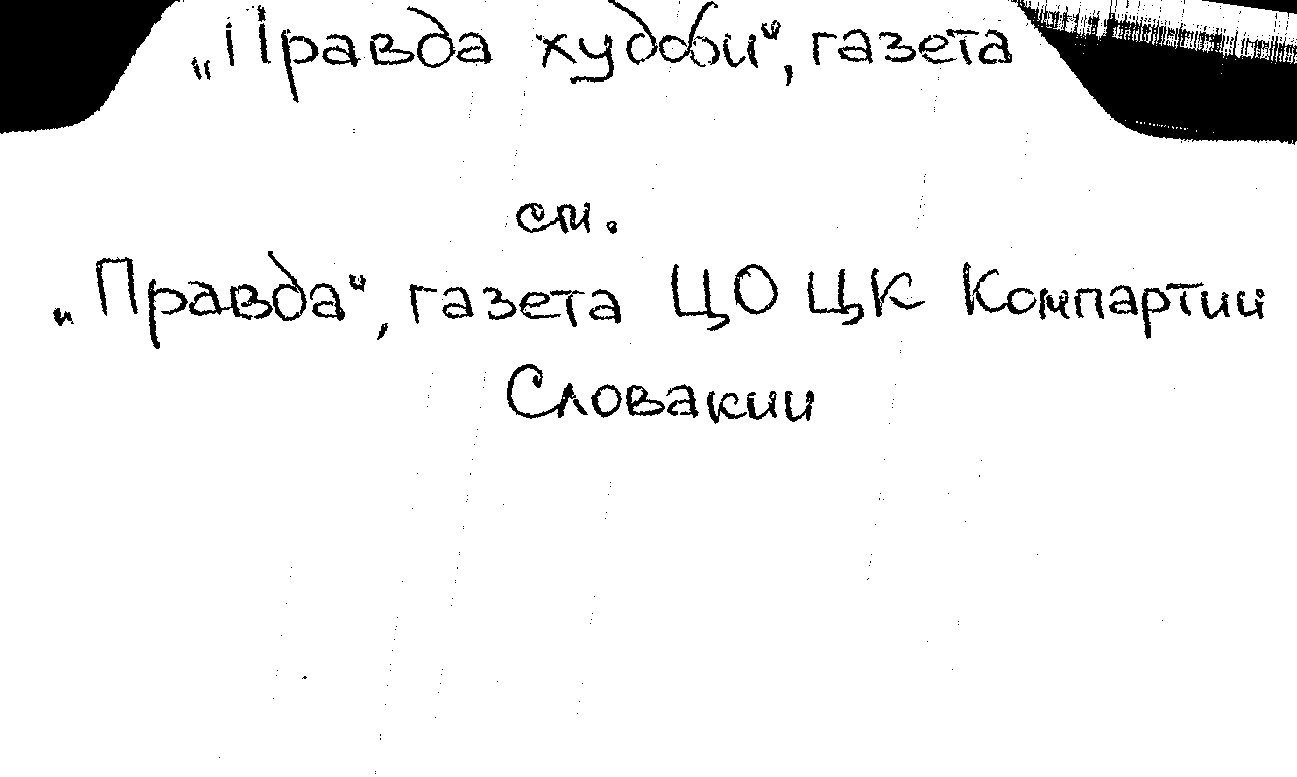 „Правда худоби“, газета
см.
„Правда“, газета ЦО ЦК Компартии
Словакии